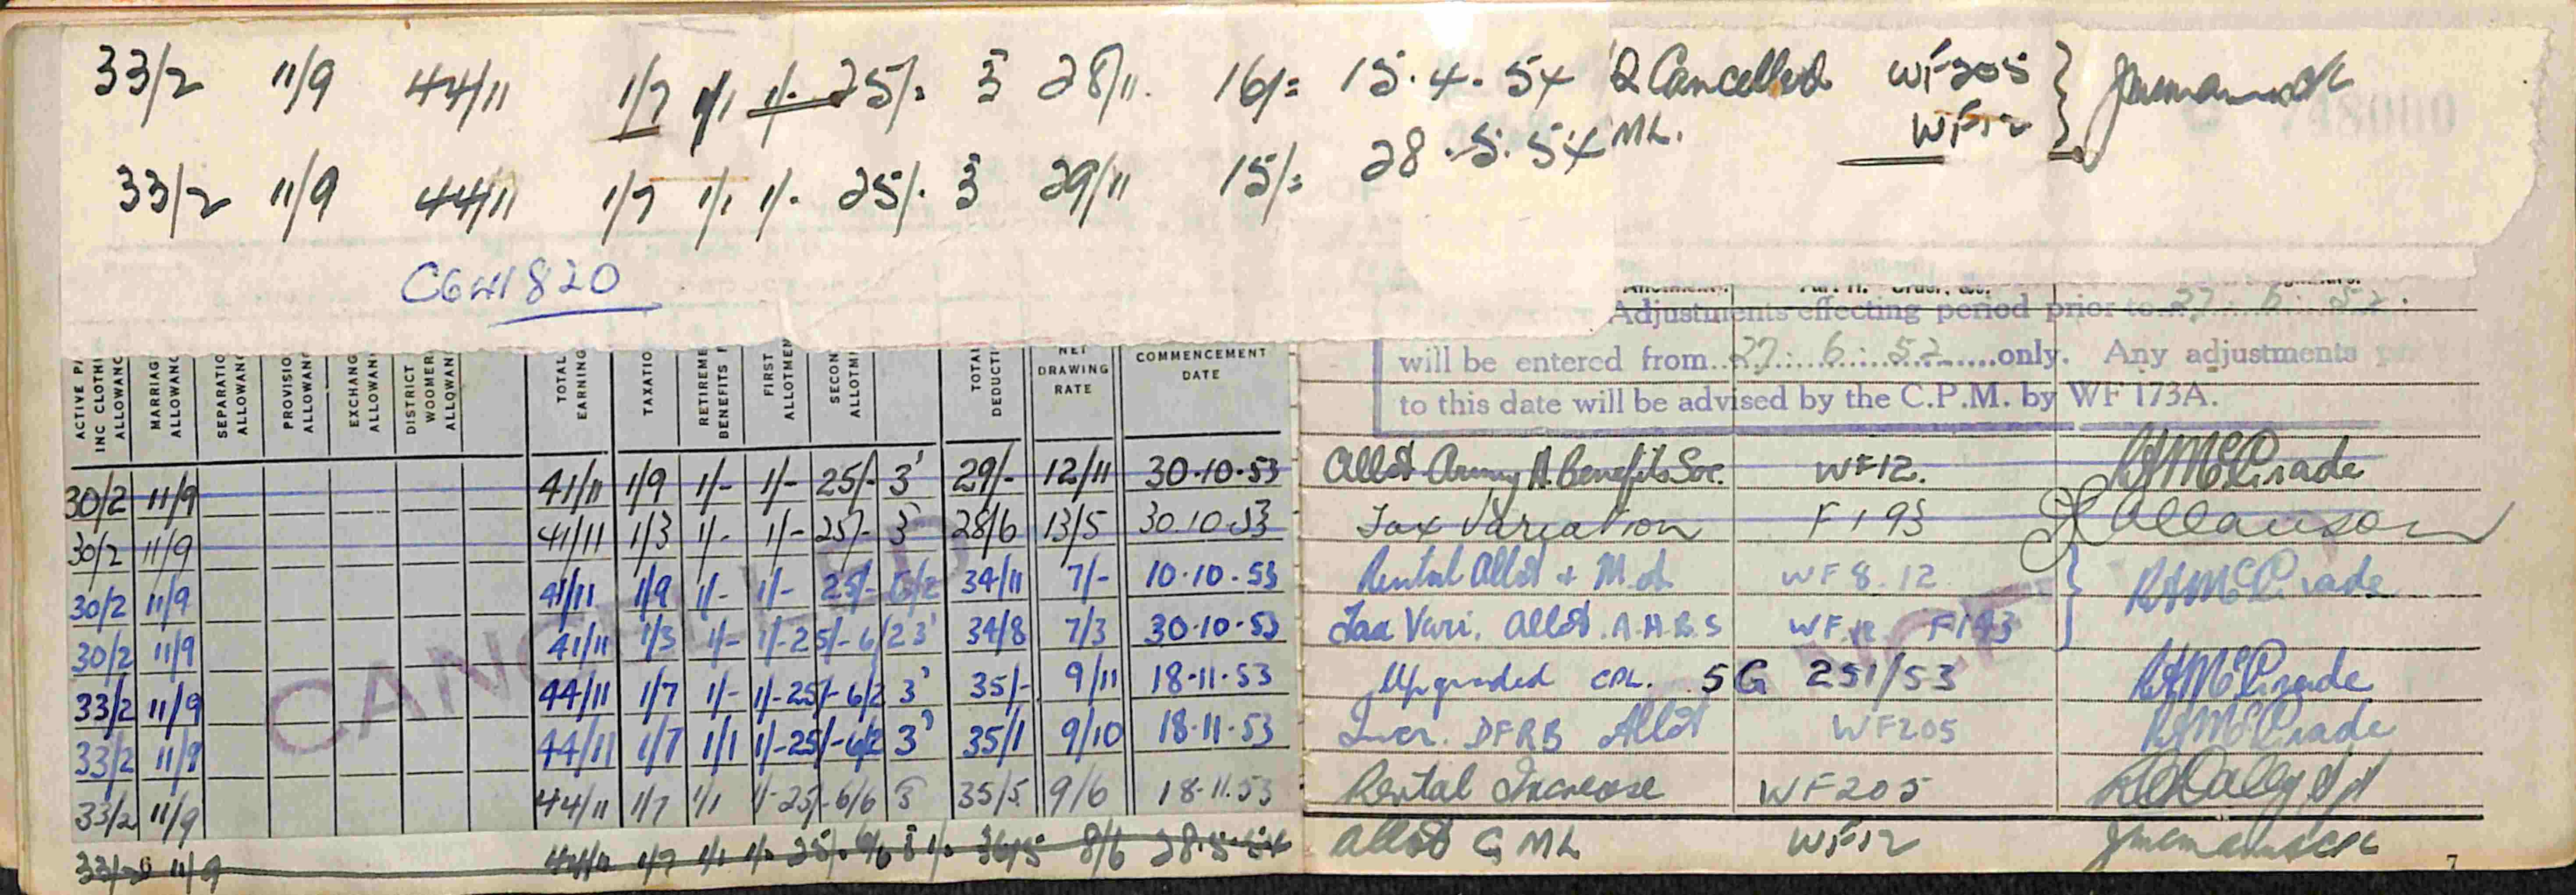 33/2 11/9 44/11 1/7 1/1 1/- 25/- 3 28/11. 16/= 15.4.54 Q Cancelled WF205
WF12
33/2 11/9 44/11 1/7 1/1 1/- 25/- 3 29/11 15/= 28.5.54 ML.
C641820
Adjustments effecting period prior to 27. 6. 52.
will be entered from 27. 6. 52 only. Any adjustments
to this date will be advised by the C.P.M. by WF 173A.
ACTIVE PA
INC CLOTHI
ALLOWANC
MARRIAG
ALLOWANC
SEPARATIO
ALLOWANC
PROVISION
ALLOWANC
EXCHANG
ALLOWAN
DISTRICT
WOOMER
ALLOWAN
TOTAL
EARNING
TAXATIO
RETIREME
BENEFITS F
FIRST
ALLOTMEN
SECON
ALLOTM
TOTA
DEDUCTI
NET
DRAWING
RATE
COMMENCEMENT
DATE
30/2 11/9 41/11 1/9 1/- 1/- 25/- 3' 29/- 12/11 30.10.53 Allot Army H. Benefits Soc. WF12. McGrade
30/2 11/9 41/11 1/3 1/- 1/- 25/- 3 28/6 13/5 30.10.53 Tax Variation F193
30/2 11/9 41/11 1/9 1/- 1/- 25/- 6/2 34/11 7/- 10.10.53 Rental Allot + M.A. WF8.12 McGrade
30/2 11/9 41/11 1/3 1/- 1/- 25/- 6/2 3' 34/8 7/3 30.10.53 Tax Vari. Allot. A.H.B.S WF12 F193
33/2 11/9 44/11 1/7 1/- 1/- 25/- 6/2 3' 35/- 9/11 18.11.53 Upgraded CPL. 5G 251/53 McGrade
33/2 11/9 44/11 1/7 1/1 1/- 25/- 6/2 3' 35/1 9/10 18.11.53 Incr. DFRB Allot WF205 McGrade
33/2 11/9 44/11 1/7 1/1 1/- 25/- 6/6 3 35/5 9/6 18.11.53 Rental Increase WF205
33/2 11/9 44/11 1/7 1/1 1/- 25/- 6/6 3 1/- 36/5 8/6 28.5.54 Allot G ML WF12
CANCELLED
7